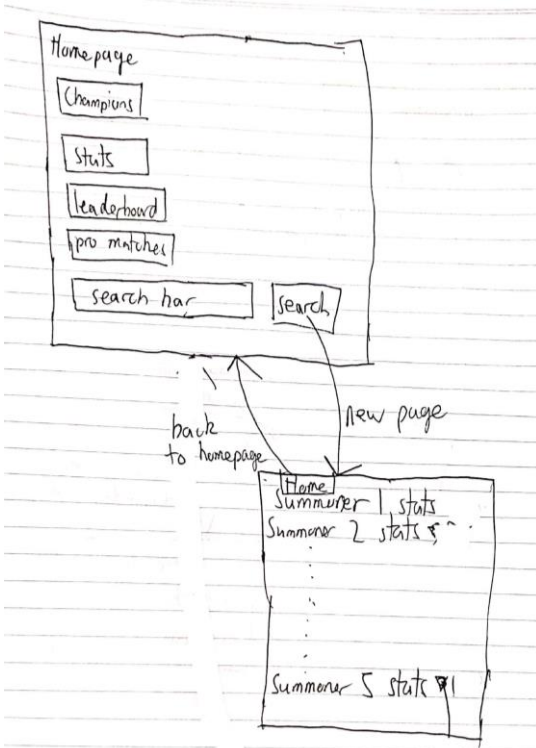 Homepage
Champions
Stats
leaderboard
pro matches
search bar
search
new page
back
to homepage
Home
Summoner 1 stats
Summoner 2 stats
Summoner 5 stats